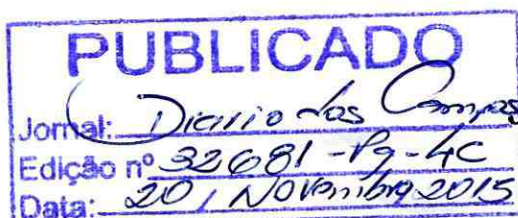 PUBLICADO
Jornal: Diario dos Campos
Edição nº 32681 - Pg - 4C
Data: 20 / Novembro 2015